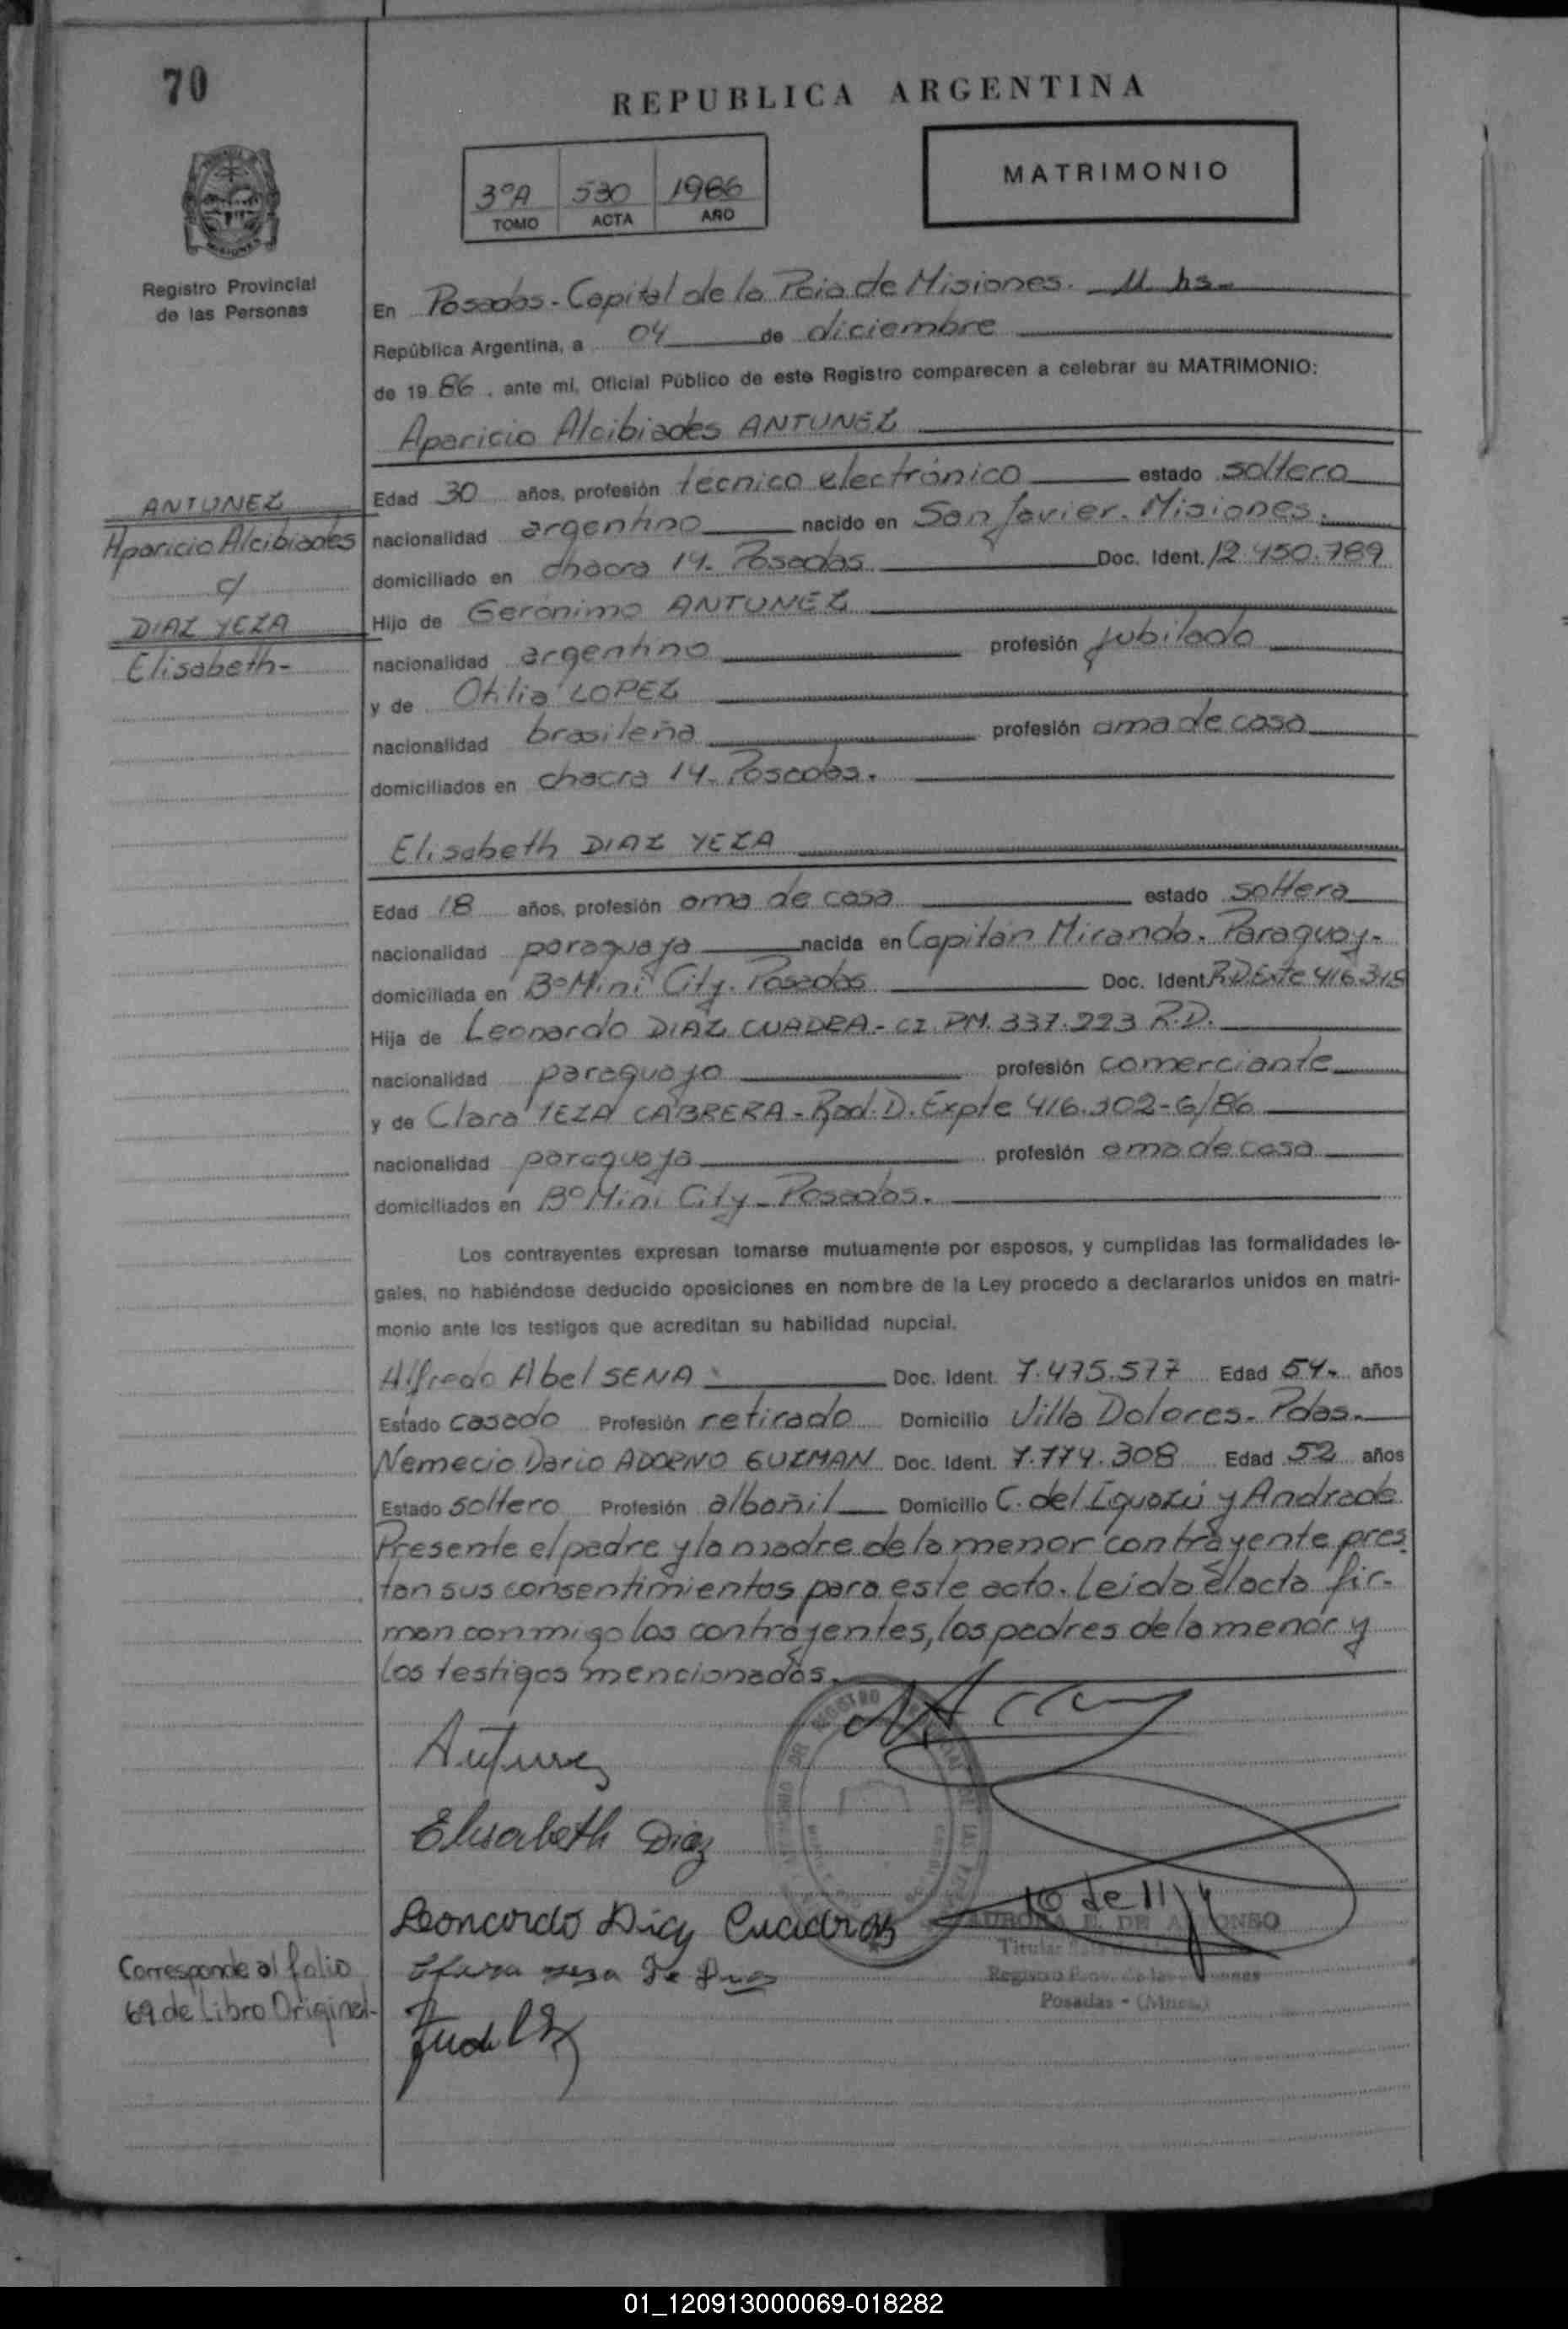 70
REPUBLICA ARGENTINA
3ºA 530 1986
TOMO ACTA AÑO
MATRIMONIO
MISIONES
Registro Provincial
de las Personas
En Posadas - Capital de la Pcia de Misiones. 11 hs.
República Argentina, a 04 de diciembre
de 1986, ante mí, Oficial Público de este Registro comparecen a celebrar su MATRIMONIO:
Aparicio Alcibiades ANTUNEZ
ANTUNEZ
Aparicio Alcibiades
c/
DIAZ YEZA
Elisabeth-
Edad 30 años, profesión técnico electrónico estado soltero
nacionalidad argentino nacido en San Javier. Misiones.
domiciliado en chacra 14. Posadas Doc. Ident. 12.450.789
Hijo de Gerónimo ANTUNEZ
nacionalidad argentino profesión jubilado
y de Otilia LOPEZ
nacionalidad brasileña profesión ama de casa
domiciliados en chacra 14. Posadas.
Elisabeth DIAZ YEZA
Edad 18 años, profesión ama de casa estado soltera
nacionalidad paraguaya nacida en Capitán Miranda. Paraguay-
domiciliada en Bº Mini City. Posadas Doc. Ident. R.D.Exte 416.315
Hija de Leonardo DIAZ CUADRA - CI. PM. 337.223 R.D.
nacionalidad paraguayo profesión comerciante
y de Clara YEZA CABRERA - Rad. D. Expte 416.302-G/86
nacionalidad paraguaya profesión ama de casa
domiciliados en Bº Mini City - Posadas.
Los contrayentes expresan tomarse mutuamente por esposos, y cumplidas las formalidades le-
gales, no habiéndose deducido oposiciones en nombre de la Ley procedo a declararlos unidos en matri-
monio ante los testigos que acreditan su habilidad nupcial.
Alfredo Abel SENA Doc. Ident. 7.475.577 Edad 54. años
Estado casado Profesión retirado Domicilio Villa Dolores. Pdas.
Nemecio Dario ADORNO GUZMAN Doc. Ident. 7.774.308 Edad 52 años
Estado soltero Profesión albañil Domicilio C. del Iguazú y Andrade
Presente el padre y la madre de la menor contrayente pres-
tan sus consentimientos para este acto. Leída el acta fir-
man conmigo los contrayentes, los padres de la menor y
los testigos mencionados.
Antunez
Elisabeth Diaz
Leoncardo Diaz Cuadras
AURORA E. DE ALONSO
Titular
Registro Prov. de las Personas
Posadas - (Mnes.)
Corresponde al folio
69 de Libro Original-
01_120913000069-018282